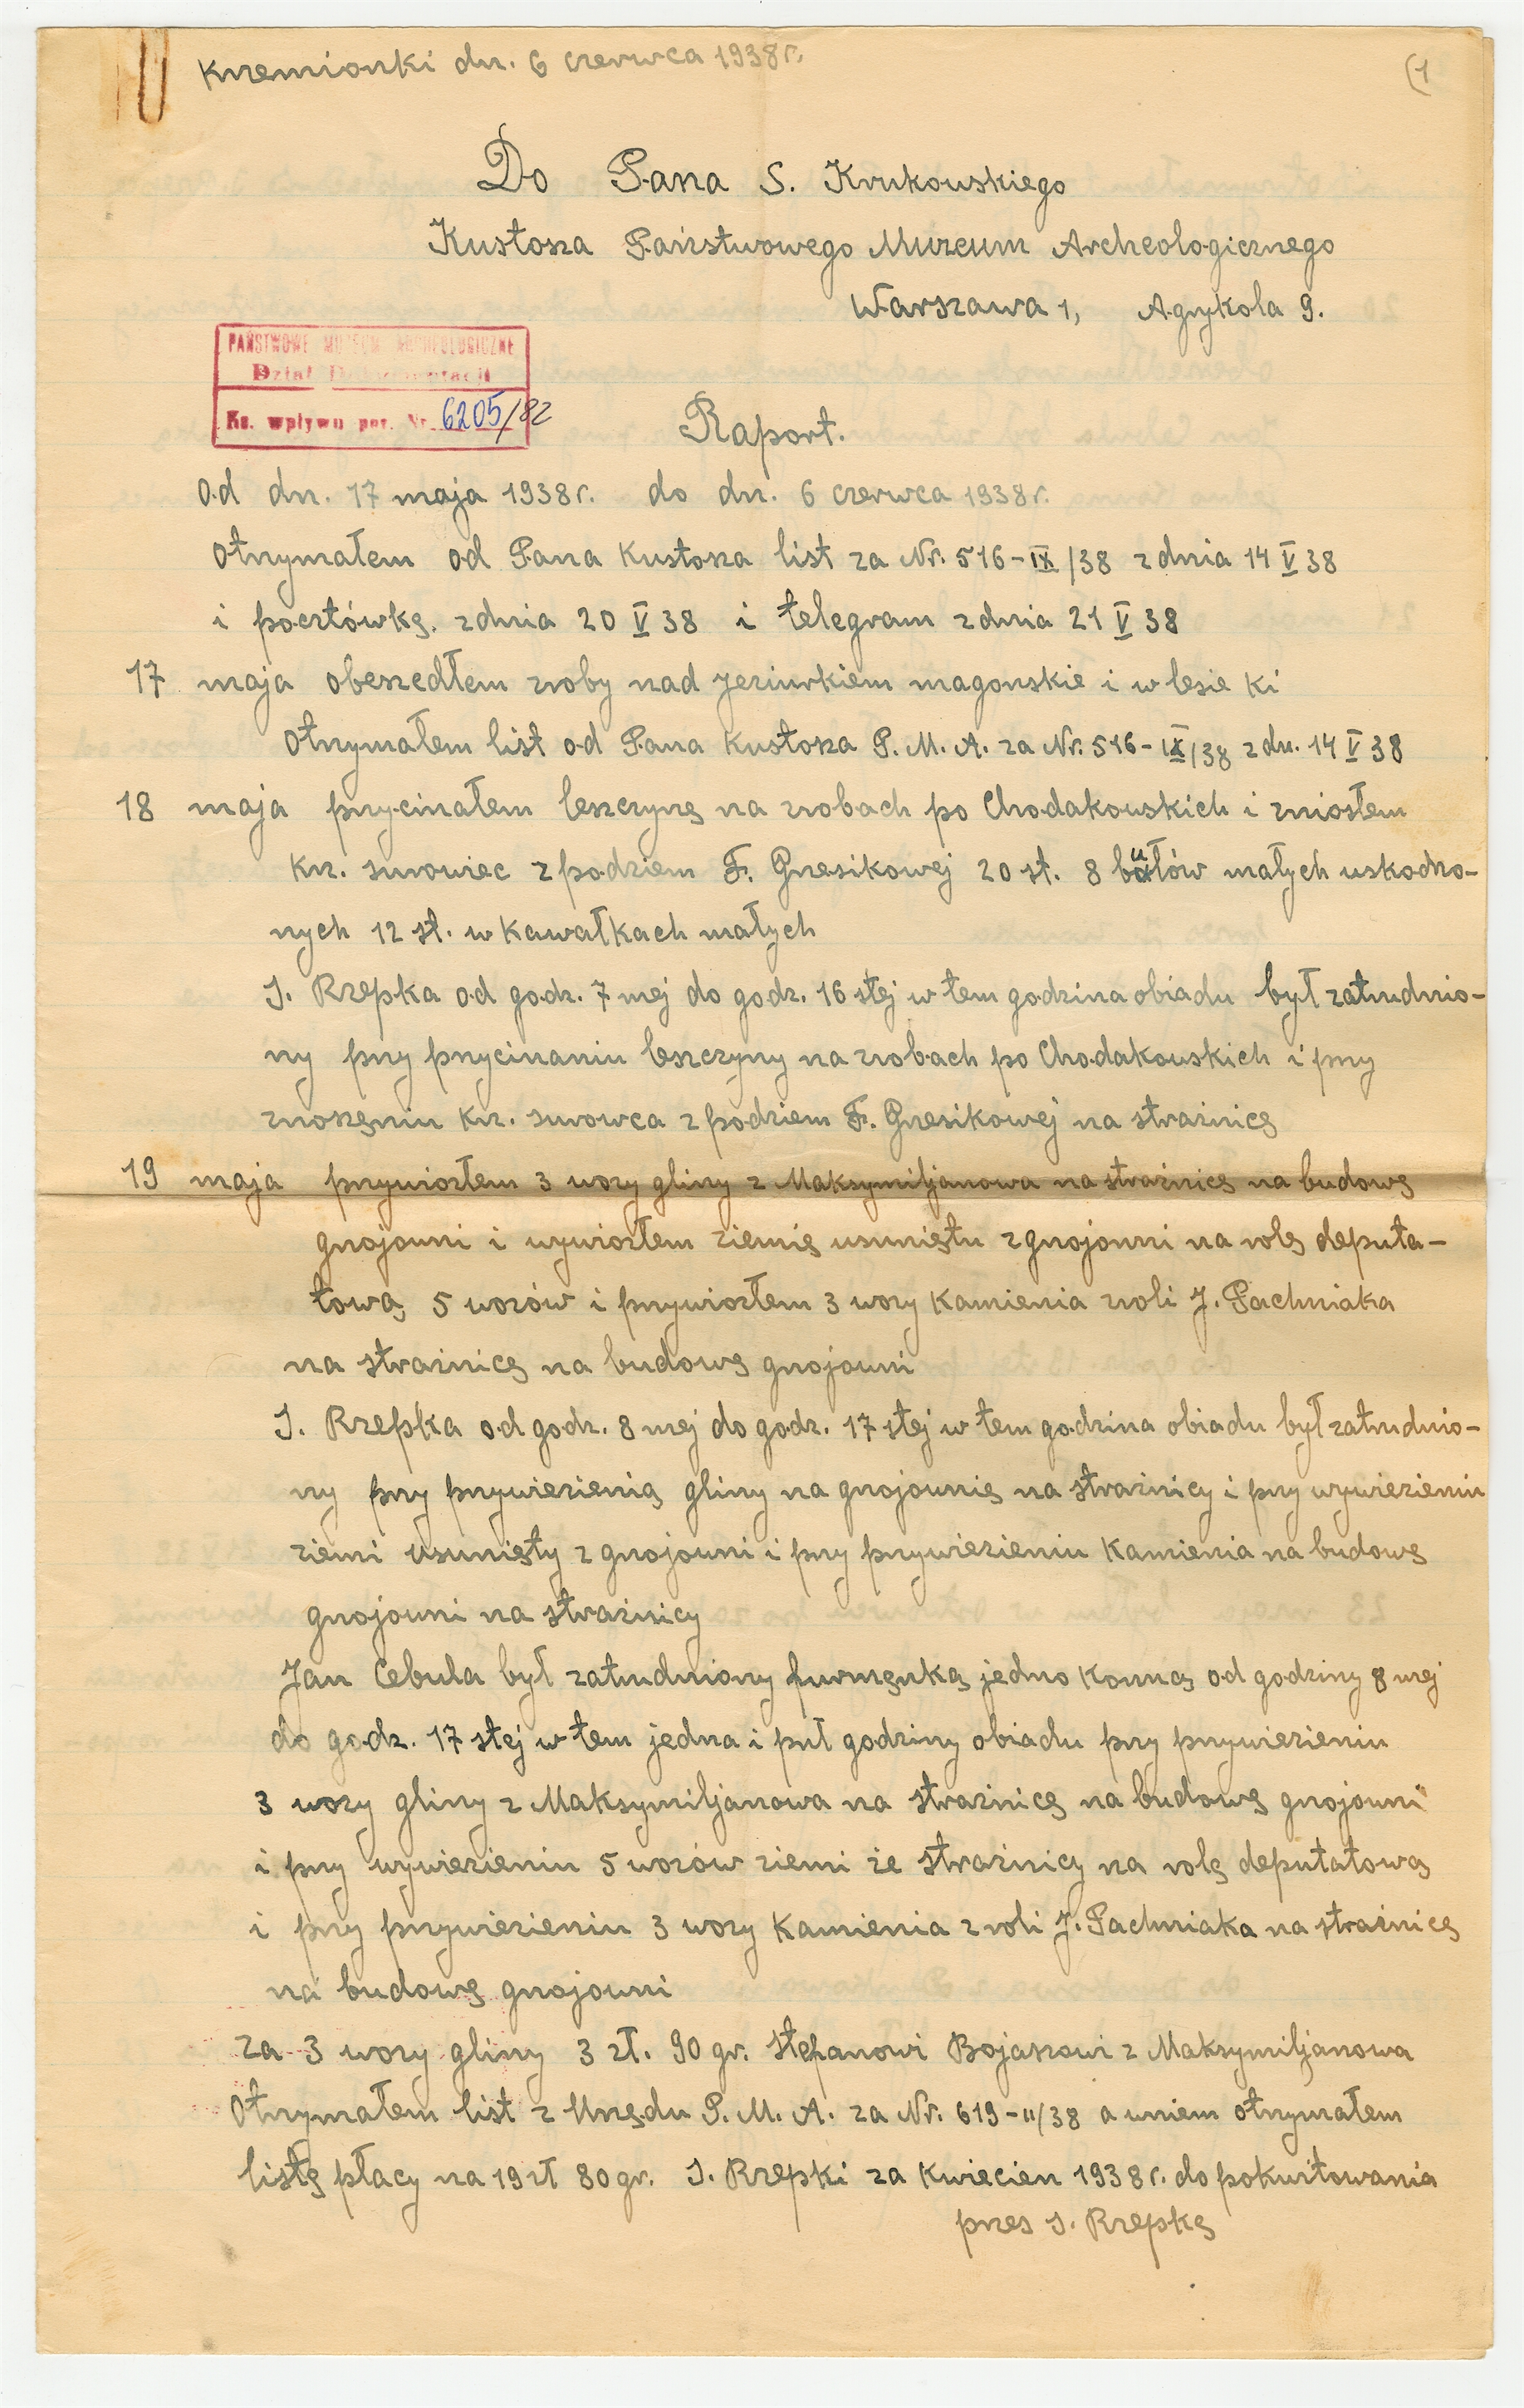 Krzemionki dn. 6 czerwca 1938 r.
(1
Do Pana S. Krukowskiego
Kustosza Państwowego Muzeum Archeologicznego
Warszawa 1, Agrykola 9.
PAŃSTWOWE MUZEUM ARCHEOLOGICZNE
Dział Dokumentacji
Ks. wpływu poz. Nr. 6205/82
Raport.
Od dn. 17 maja 1938 r. do dn. 6 czerwca 1938 r.
Otrzymałem od Pana Kustosza list za Nr. 516-IX/38 z dnia 14 V 38
i pocztówkę. z dnia 20 V 38 i telegram z dnia 21 V 38
17 maja obeszedłem zroby nad jeziurkiem magonskie i w lesie ki
Otrzymałem list od Pana Kustosza P. M. A. za Nr. 516-IX/38 z dn. 14 V 38
18 maja przycinałem leszczynę na zrobach po Chodakowskich i zniosłem
krz. surowiec z podziem F. Grzesikowej 20 st. 8 bułów małych uskodzo-
nych 12 st. w kawałkach małych
J. Rzepka od godz. 7 mej do godz. 16 stej w tem godzina obiadu był zatrudnio-
ny przy przycinaniu leszczyny na zrobach po Chodakowskich i przy
znoszęniu krz. surowca z podziem F. Grzesikowej na strażnicę
19 maja przywiozłem 3 wozy gliny z Maksymiljanowa na strażnicę na budowę
gnojowni i wywiozłem ziemię usuniętu z gnojowni na rolę deputa-
tową 5 wozów i przywiozłem 3 wozy kamienia z roli J. Pachniaka
na strażnicę na budowę gnojowni
J. Rzepka od godz. 8 mej do godz. 17 stej w tem godzina obiadu był zatrudnio-
ny przy przywiezienią gliny na gnojownię na strażnicy i przy wywiezieniu
ziemi usunięty z gnojowni i przy przywiezieniu kamienia na budowę
gnojowni na strażnicy
Jan Cebula był zatrudniony furmęnką jedno konną od godziny 8 mej
do godz. 17 stej w tem jedna i puł godziny obiadu przy przywiezieniu
3 wozy gliny z Maksymiljanowa na strażnicę na budowę gnojowni
i przy wywiezieniu 5 wozów ziemi ze strażnicy na rolę deputatową
i przy przywiezieniu 3 wozy kamienia z roli J. Pachniaka na strażnicę
na budowę gnojowni
za 3 wozy gliny 3 zł. 90 gr. Stepanowi Bojaszowi z Maksymiljanowa
Otrzymałem list z Urzędu P. M. A. za Nr. 619-II/38 a wniem otrzymałem
listę płacy na 19 zł 80 gr. J. Rzepki za kwiecien 1938 r. do pokwitowania
przes J. Rzepkę